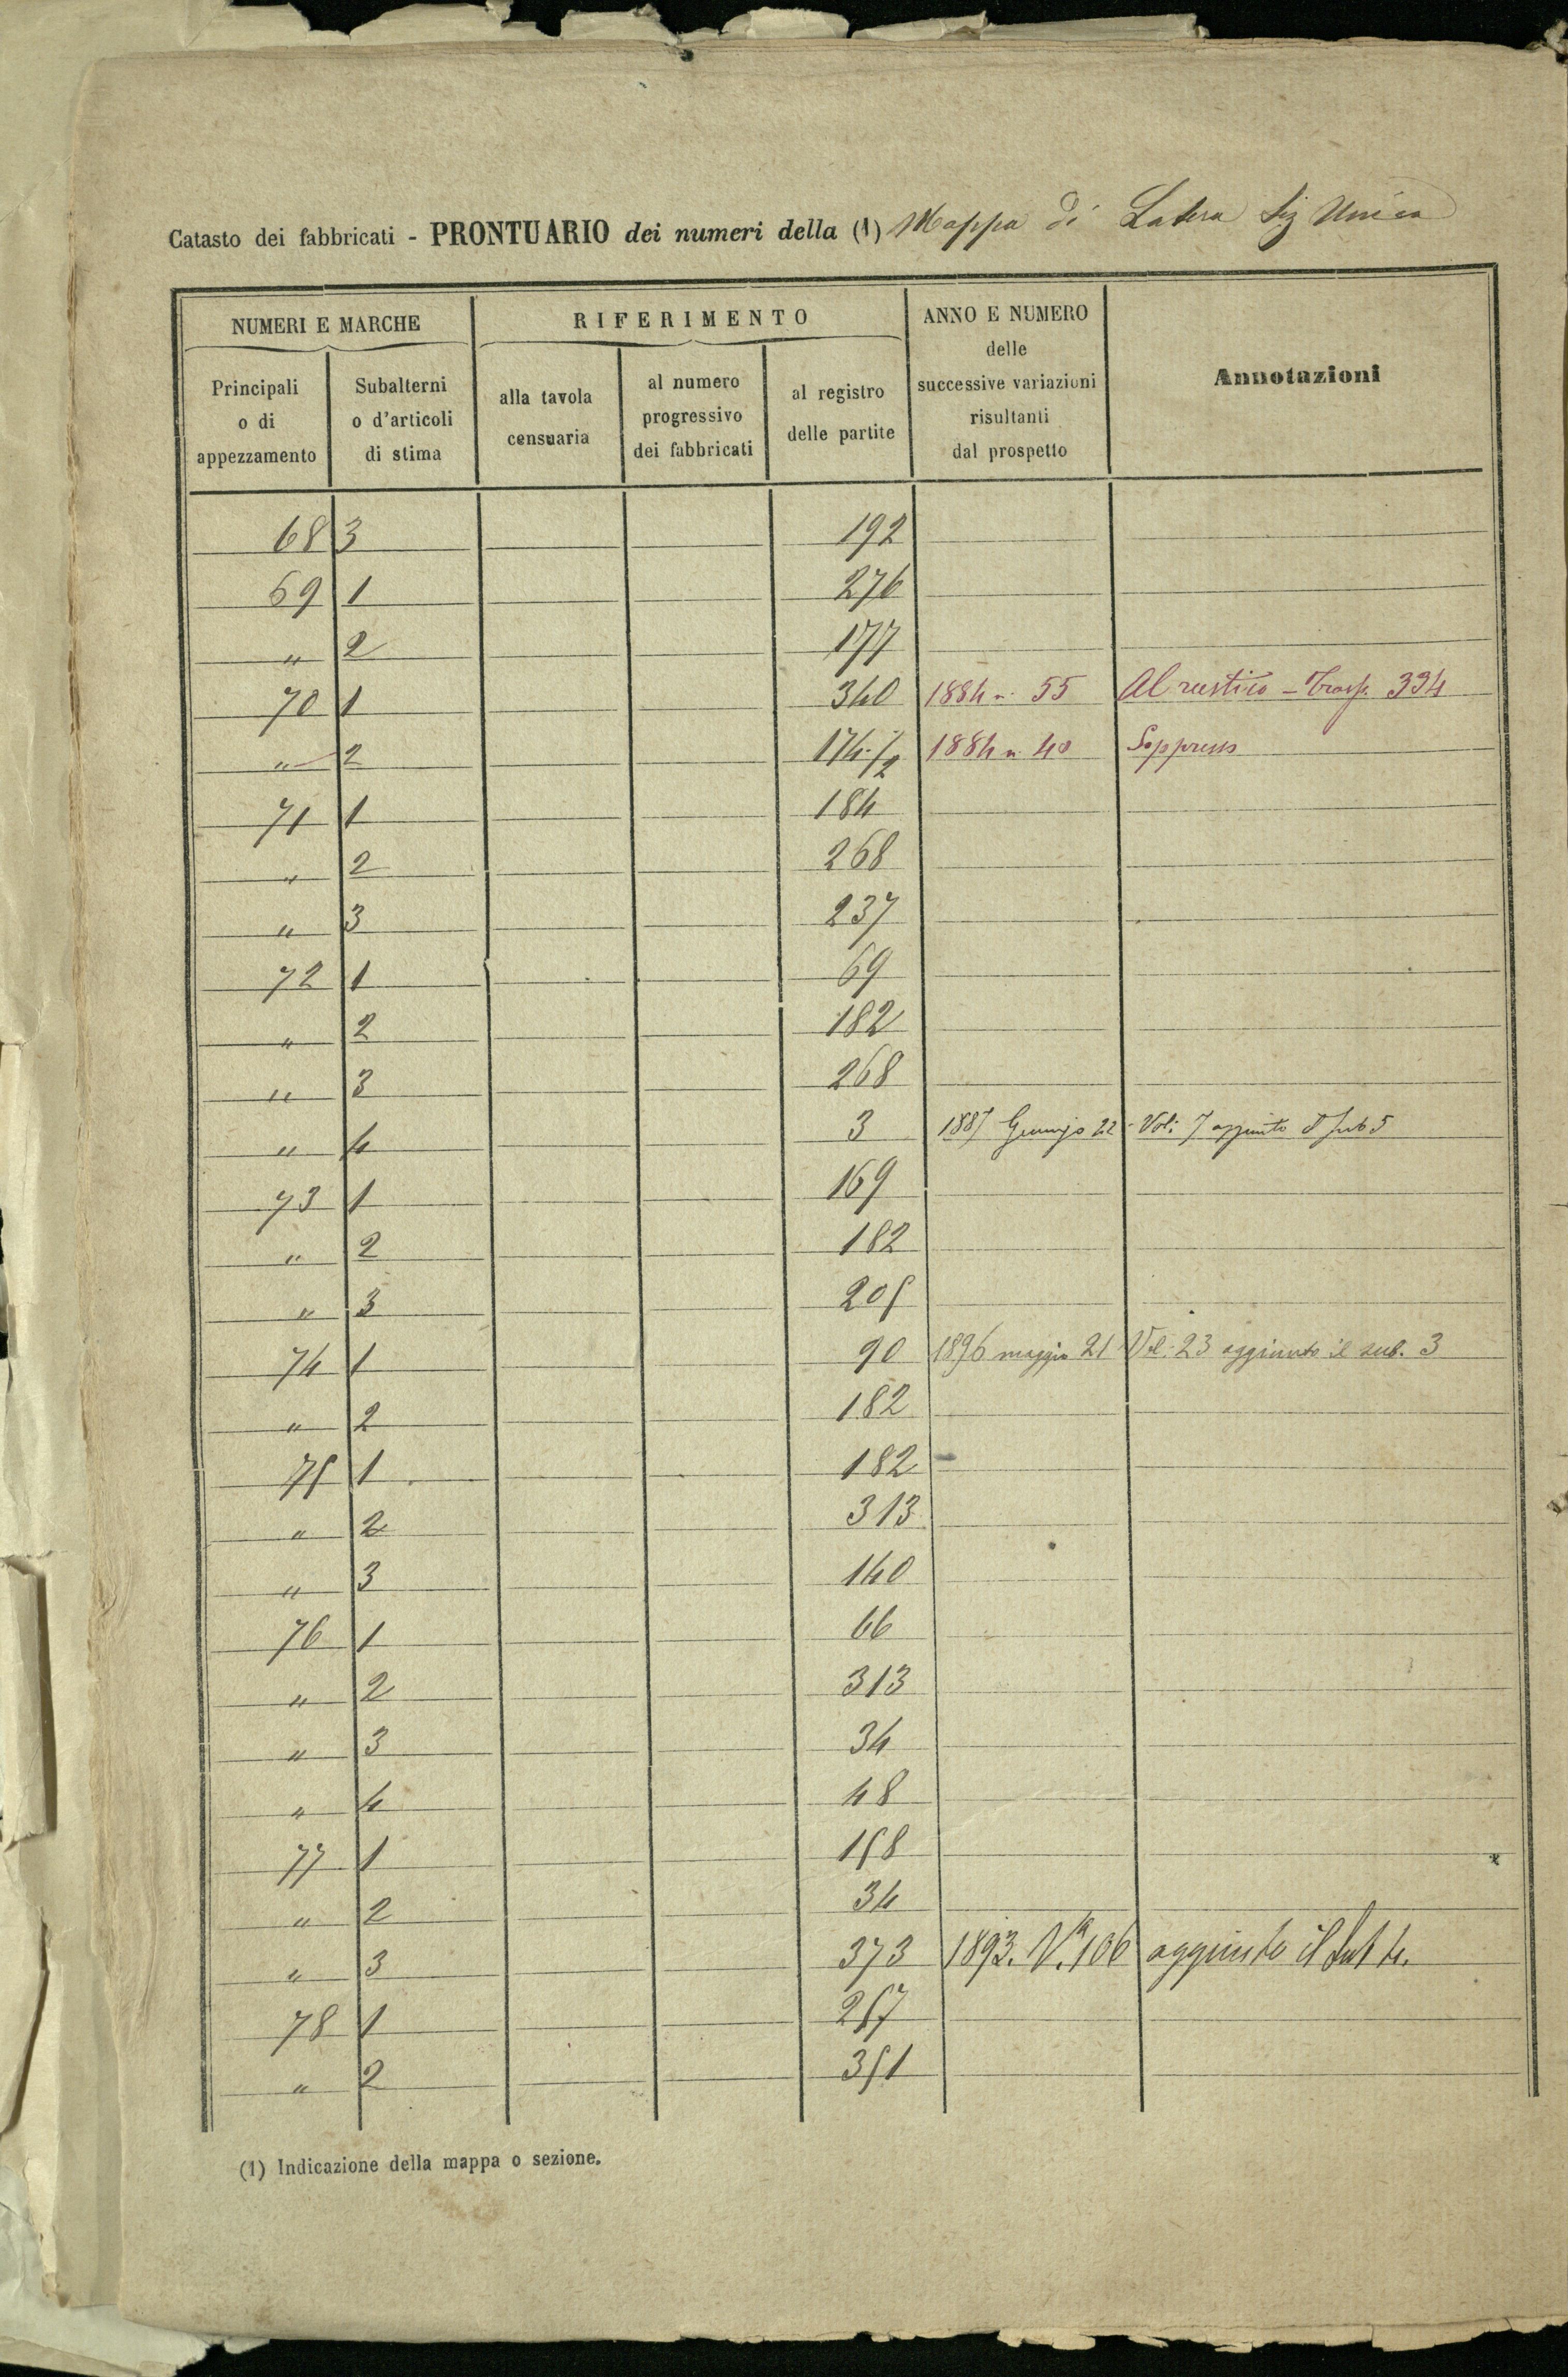 Catasto dei fabbricati - PRONTUARIO dei numeri della (1) Mappa di Latera Sez Unica
NUMERI E MARCHE
RIFERIMENTO
ANNO E NUMERO
delle
successive variazioni
risultanti
dal prospetto
Annotazioni
Principali
o di
appezzamento
Subalterni
o d'articoli
di stima
alla tavola
censuaria
al numero
progressivo
dei fabbricati
al registro
delle partite
68 3 192
69 1 276
" 2 177
70 1 340 1884 n. 55 Al rustico - Trasp. 394
" 2 174 1/2 1884 n 40 Soppresso
71 1 184
" 2 268
" 3 237
72 1 69
" 2 182
" 3 268
" 4 3 1887 22 - Vol: 7 aggiunto Sub 5
73 1 169
" 2 182
" 3 205
74 1 90 1896 maggio 21 Vol: 23 aggiunto il sub. 3
" 2 182
75 1 182
" 2 313
" 3 140
76 1 66
" 2 313
" 3 34
" 4 48
77 1 158
" 2 34
" 3 373 1893. N.° 106 aggiunto il Sub 4.
78 1 257
" 2 351
(1) Indicazione della mappa o sezione.